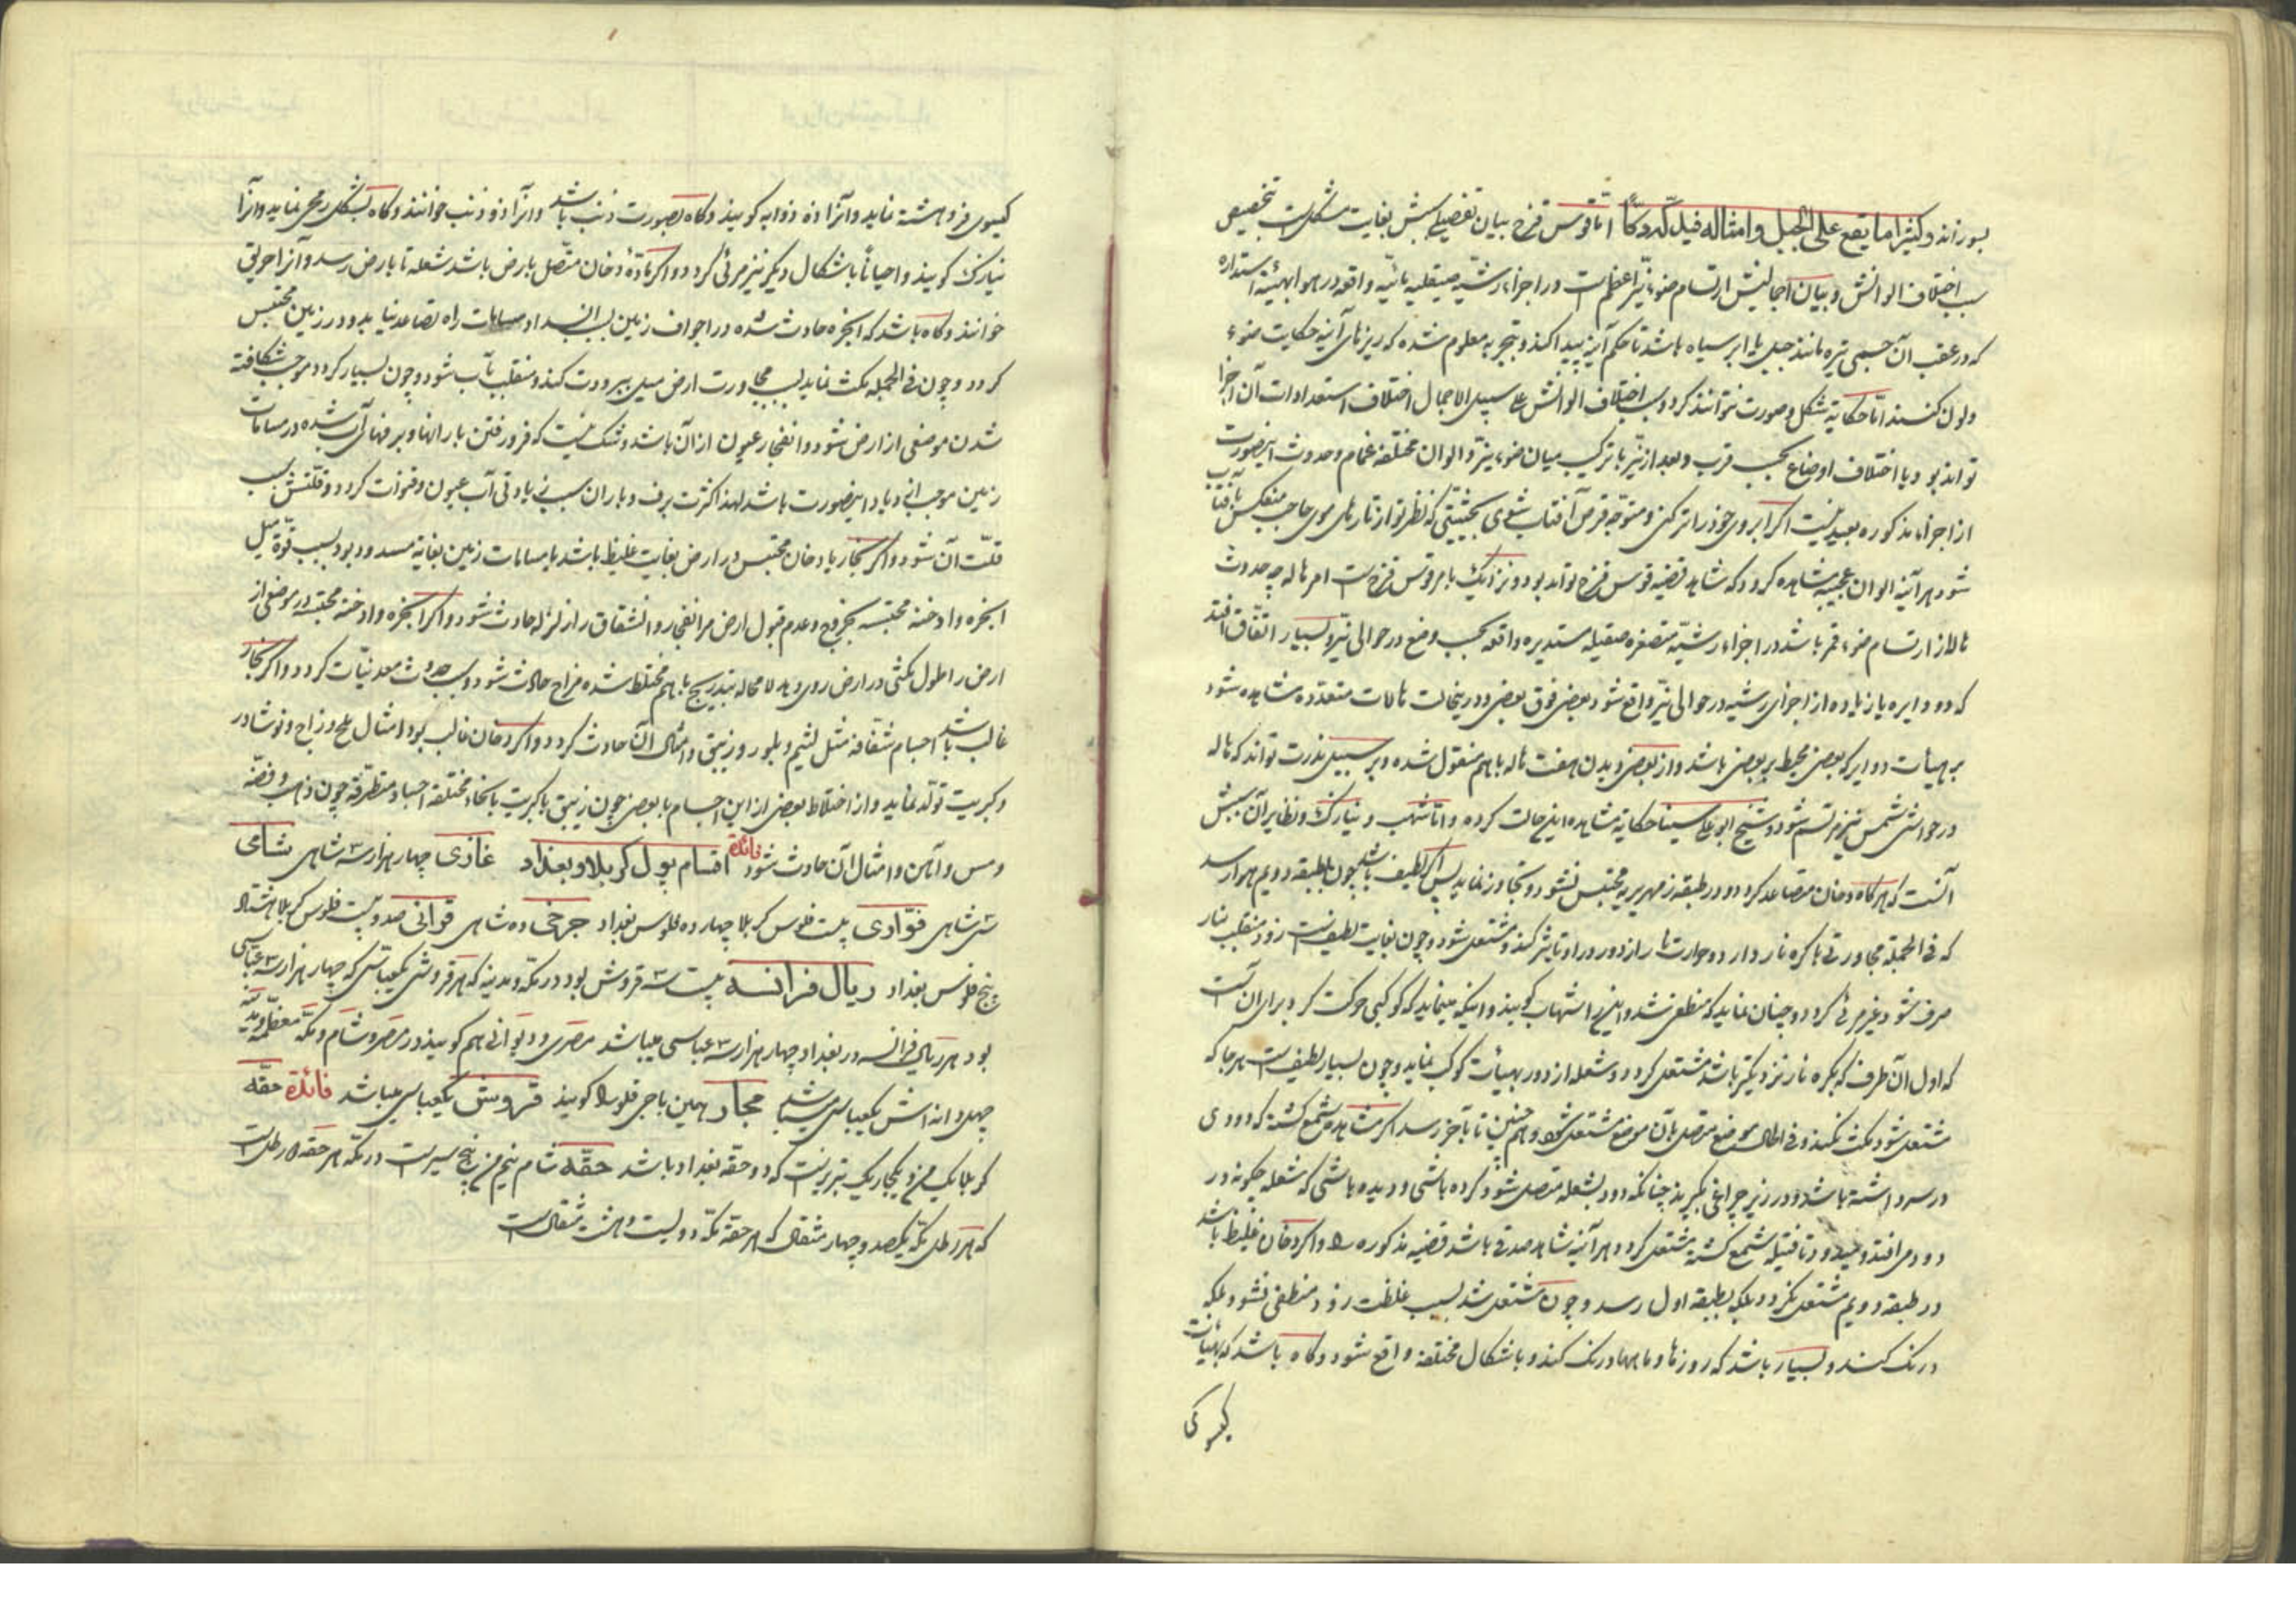 بسوزاند و کثیرا ما یقع علی الجبل و امثاله فیدکه دکا اما قوس قزح بیان تفصیل سببش بغایت مشکل است بتخصیص
سبب اختلاف الوانش و بیان اجمالیش ارتسام ضوء نیر اعظم است در اجزاء رشیه صیقلیه مائیه واقعه در هوا بهیئة استداره
که در عقب آن جسمی تیره مانند جبل یا ابر سیاه باشد تا حکم آینه پیدا کند و بتجربه معلوم شده که ریزهای آینه حکایت ضوء
و لون کنند اما حکایة شکل و صورت نتوانند کرد و سبب اختلاف الوانش علی سبیل الاجمال اختلاف استعدادات آن اجزا
تواند بود یا اختلاف اوضاع بحسب قرب و بعد از نیر یا ترکیب میان ضوء نیر و الوان مختلفه غمام و حدوث اینصورت
از اجزاء مذکوره بعید نیست اگر ابروی خود را تر کنی و متوجه قرص آفتاب شوی بحیثیتی که نظر تو از تارهای موی حاجب منعکس بآفتاب
شود هر آینه الوان عجیبه مشاهده گردد که شاهد قضیه قوس قزح تواند بود و نزدیک بامر قوس قزح است امر هاله چه حدوث
هاله از ارتسام ضوء قمر باشد در اجزاء رشیه متصغره صقیله مستدیره واقعه بحسب وضع در حوالی نیر و بسیار اتفاق افتد
که دو دایره یا زیاده از اجزای رشیه در حوالی نیر واقع شود بعضی فوق بعضی و در ینحالت هالات متعدده مشاهده شود
بر هیات دوایر که بعضی محیط بر بعضی باشد و از بعضی دیدن هفت هاله با هم منقول شده و بر سبیل ندرت تواند که هاله
در حواشی شمس نیز مرتسم شود و شیخ ابو علی سینا حکایة مشاهده این حالت کرده و اما شهب و نیازک و نظایر آن سببش
آنست که هر گاه دخان متصاعد گردد و در طبقه زمهریریه محتبس نشود و تجاوز نماید پس اگر لطیف باشد چون بطبقه دویم هوا رسد
که فی الجمله مجاورتی با کره نار دارد و حرارت نار از دور در او تاثیر کند و مشتعل شود و چون بغایت لطیف است زود منقلب بنار
صرف شود و غیر مرئی گردد و چنان نماید که منطفی شد و این را شهاب گویند و اینکه مینماید که کوکبی حرکت کرد برای آن است
که اول آن طرف که بکره نار نزدیکتر باشد مشتعل گردد و شعله از دور بهیأت کوکب نماید و چون بسیار لطیف است هر جا که
مشتعل شود مکث نکند و فی الحال موضع متصل بآن موضع مشتعل شود و هم چنین تا بآخر رسد اگر مشاهده شمع کشته که دودی
در سر داشته باشد و در زیر چراغی بگیرند چنانکه دود بشعله متصل شود کرده باشی و دیده باشی که شعله چگونه در
دود می‌افتد و میدود تا فتیله شمع کشته مشتعل گردد هر آینه شاهد صدقی باشد قضیه مذکوره را و اگر دخان غلیظ باشد
در طبقه دویم مشتعل نگردد بلکه بطبقه اول رسد و چون مشتعل شد بسبب غلظت زود منطفی نشود بلکه
درنگ کند و بسیار باشد که روزها و ماهها درنگ کند و باشکال مختلفه واقع شود و گاه باشد که بهیأت
گیسوی
گیسوی فروهشته نماید و آنرا ذو ذوابه گویند و گاه بصورت ذنب باشد و آنرا ذو ذنب خوانند و گاه بشکل رمحی نماید و آنرا
نیازک گویند و احیانا باشکال دیگر نیز مرئی گردد و اگر مادهٔ دخان متصل بارض باشد شعله تا بارض رسد و آنرا حریق
خوانند و گاه باشد که ابخره حادث شده در اجواف زمین بسبب انسداد مسامات راه تصاعد نیابد و در زمین محتبس
گردد و چون فی الجمله مکث نماید بسبب مجاورت ارض میل ببرودت کند و منقلب بآب شود و چون بسیار گردد موجب شکافته
شدن موضعی از ارض شود و انفجار عیون از آن باشد و شک نیست که فرو رفتن بارانها و برفهای آب شده در مسامات
زمین موجب اینصورت باشد لهذا کثرت برف و باران سبب زیادتی آب عیون و قنوات گردد و قلتش سبب
قلت آن شود و اگر بخار یا دخان محتبس در ارض بغایت غلیظ باشد یا مسامات زمین بغایة مسدود بود بسبب قوة میل
ابخره و ادخنه محتبسه بخروج و عدم قبول ارض مر انفجار و انشقاق را زلزله حادث شود و اگر ابخره و ادخنه محتبسه در موضعی از
ارض را طول مکثی در ارض روی دهد لا محاله بتدریج با هم مختلط شده مزاج حادث شود و سبب حدوث معدنیات گردد و اگر بخار
غالب باشد اجسام شفافه مثل یشم و بلور و زیبق و امثال آنها حادث گردد و اگر دخان غالب بود امثال ملح و زاج و نوشادر
و کبریت تولد نماید و از اختلاط بعضی از این اجسام با بعضی چون زیبق با کبریت باتحاد مختلفه اجساد متطرقه چون ذهب و فضه
و مس و آهن و امثال آن حادث شود فائدة اقسام پول کربلا و بغداد غازی چهار هزار سه شاهی شامی
شاهی فوادی بیست فلوس کربلا چهارده فلوس بغداد جرخی ده شاهی قوانی صد و بیست فلوس کربلا هشتاد
پنج فلوس بغداد ریال فرانسه بیست قروش بود در مکه و مدینه که هر قروشی یکعباسی که چهار هزار عباسی
بود هر ریالی فرانسه در بغداد چهار هزار سه عباسی میباشد مصری و دیوانی هم گویند در مصر و شام و مکه معظمه و مدینه
چهل دانه اش یکعباسی میباشد مجار همین باجی قلو را گویند قروش یکعباسی میباشد فائدة حقه
کربلا یک من و یکچاریک تبریز است که دو حقه بغداد باشد حقه شام نیم من پنج سیر است در مکه هر حقه رطل است
که هر رطل مکه یکصد و چهار مثقال که هر حقه مکه دویست و هشت مثقال است